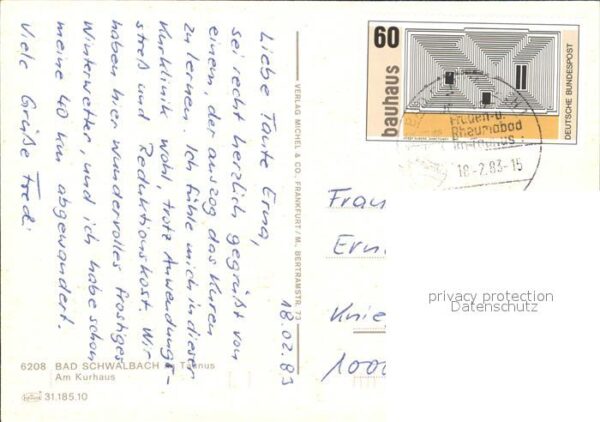 Liebe Tante Erna,
sei recht herzlich gegrüßt von
einem, der auszog das Kuren
zu lernen. Ich fühle mich in dieser
Kurklinik wohl, trotz Anwendungs-
streß und Reduktionskost. Wir
haben hier wundervolles frostiges
Winterwetter, und ich habe schon
meine 40 km abgewandert.
Viele Grüße Fredi
18.02.83
VERLAG MICHEL & CO., FRANKFURT/M., BERTRAMSTR. 73
60
bauhaus
DEUTSCHE BUNDESPOST
Frauen-u.
Rheumabad
im Taunus
18-2.83-15
Frau
Ern
Knie
1000
privacy protection
Datenschutz
6208 BAD SCHWALBACH Taunus
Am Kurhaus
31.185.10